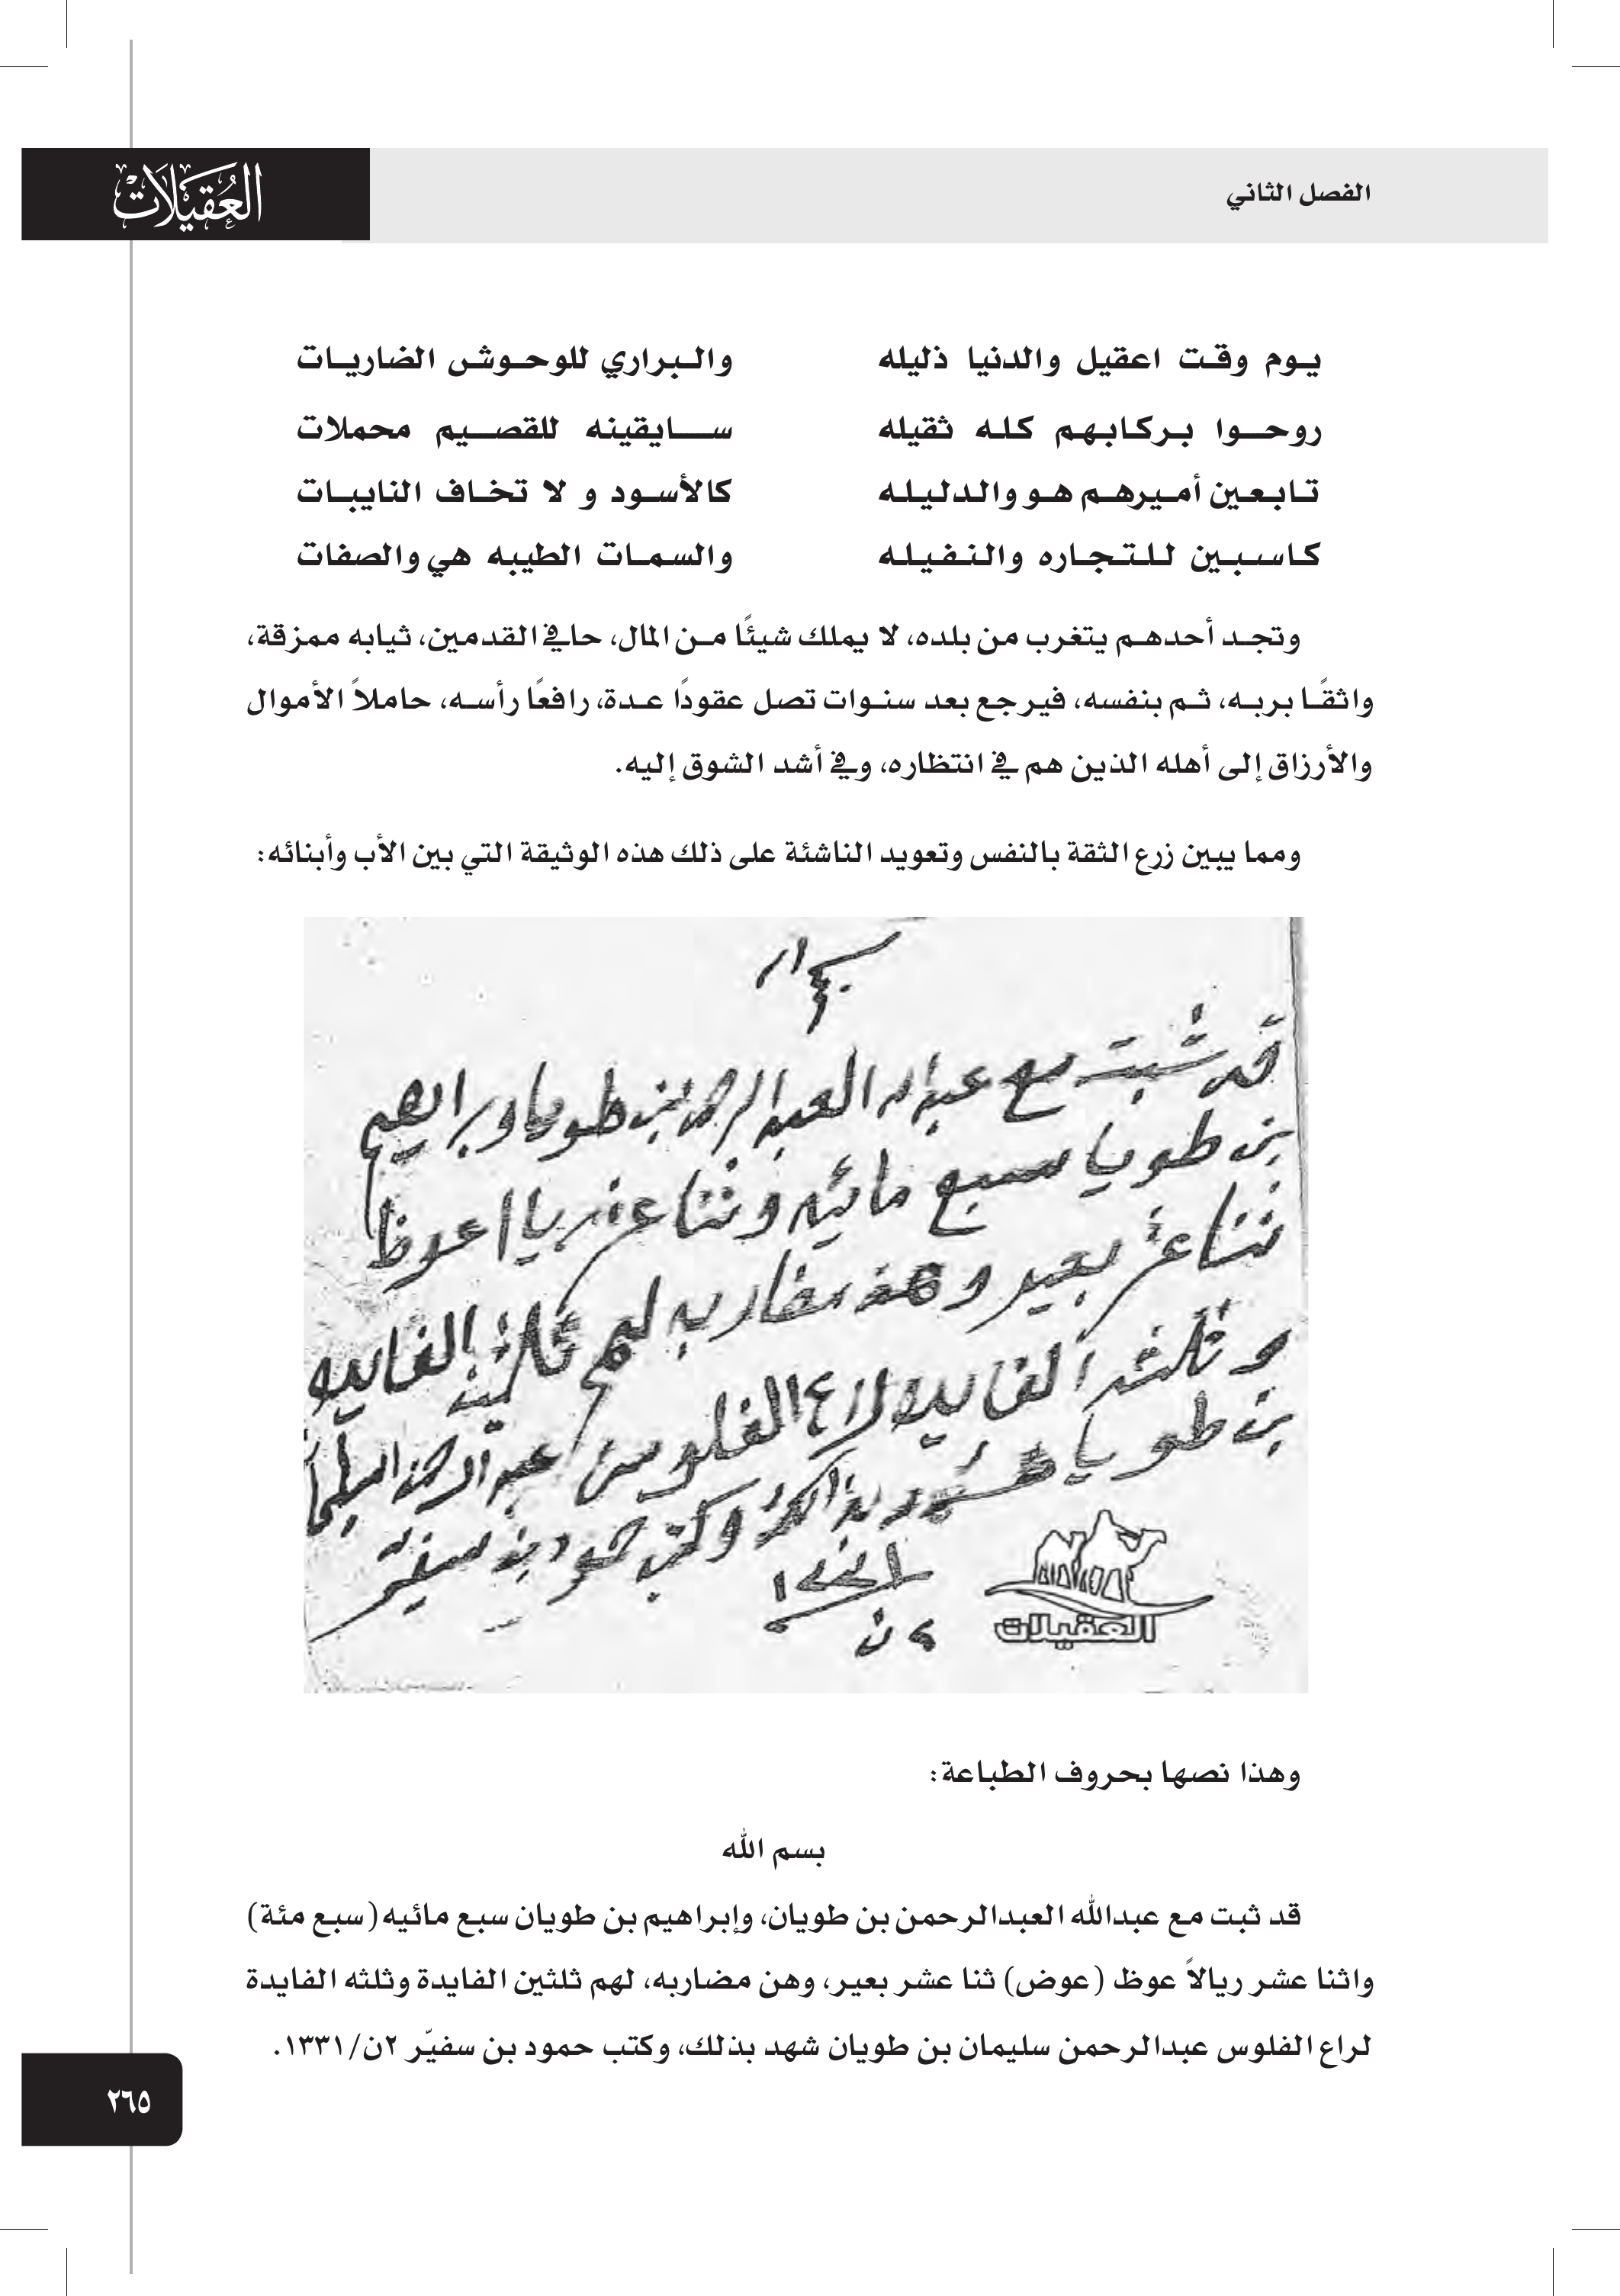 الفصل الثاني
العُقَيلَات
يوم وقت اعقيل والدنيا ذليله والبراري للوحوش الضاريات
روحوا بركابهم كله ثقيله سايقينه للقصيم محملات
تابعين أميرهم هو والدليله كالأسود و لا تخاف النايبات
كاسبين للتجاره والنفيله والسمات الطيبه هي والصفات
وتجد أحدهم يتغرب من بلده، لا يملك شيئًا من المال، حافي القدمين، ثيابه ممزقة،
واثقًا بربه، ثم بنفسه، فيرجع بعد سنوات تصل عقودًا عدة، رافعًا رأسه، حاملاً الأموال
والأرزاق إلى أهله الذين هم في انتظاره، وفي أشد الشوق إليه.
ومما يبين زرع الثقة بالنفس وتعويد الناشئة على ذلك هذه الوثيقة التي بين الأب وأبنائه:
قد ثبت مع عبدالله العبدالرحمن بن طويان وبراهيم
بن طويان سبع مائيه وثنا عشر ريال عوظ
ثنا عشر بعير وهن مضاربه لهم ثلثين الفايده
وثلثه الفايده لراع الفلوس عبدالرحمن السليمان
بن طويان شهد بذالك وكتب حمود بن سفير
١٣٣١
٢ ن
العقيلات
وهذا نصها بحروف الطباعة:
بسم الله
قد ثبت مع عبدالله العبدالرحمن بن طويان، وإبراهيم بن طويان سبع مائيه (سبع مئة)
واثنا عشر ريالاً عوظ (عوض) ثنا عشر بعير، وهن مضاربه، لهم ثلثين الفايدة وثلثه الفايدة
لراع الفلوس عبدالرحمن سليمان بن طويان شهد بذلك، وكتب حمود بن سفيّر ٢ن/١٣٣١.
٢٦٥